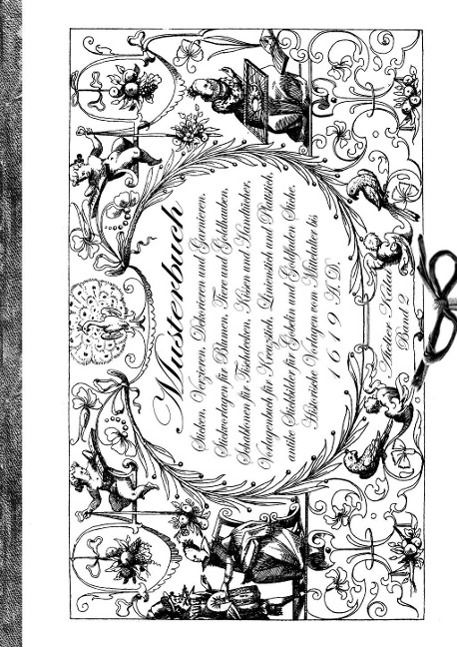 Musterbuch
Sticken, Verzieren, Dekorieren und Garnieren.
Stickvorlagen für Blumen, Tiere und Goldhauben.
Schablonen für Tischdecken, Kissen und Handtücher.
Vorlagenbuch für Kreuzstich, Leinenstich und Plattstich,
antike Stickbilder für Gobelin und Goldfaden Sticke.
Historische Vorlagen vom Mittelalter bis
1619 A.D.
Stetter Katur
Band 2